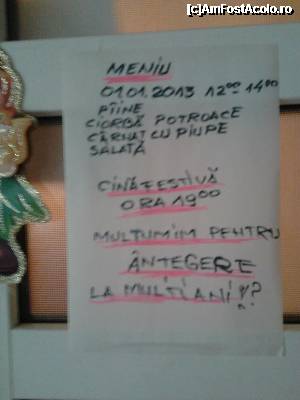 (c)AmFostAcolo.ro
MENIU
01.01.2013 12⁰⁰-14⁰⁰
PÎINE
CIORBĂ POTROACE
CÂRNAT CU PIUPE
SALATĂ
CINĂ FESTIVĂ
ORA 19⁰⁰
MULȚUMIM PENTRU
ÂNȚEGERE
LA MULȚI ANI